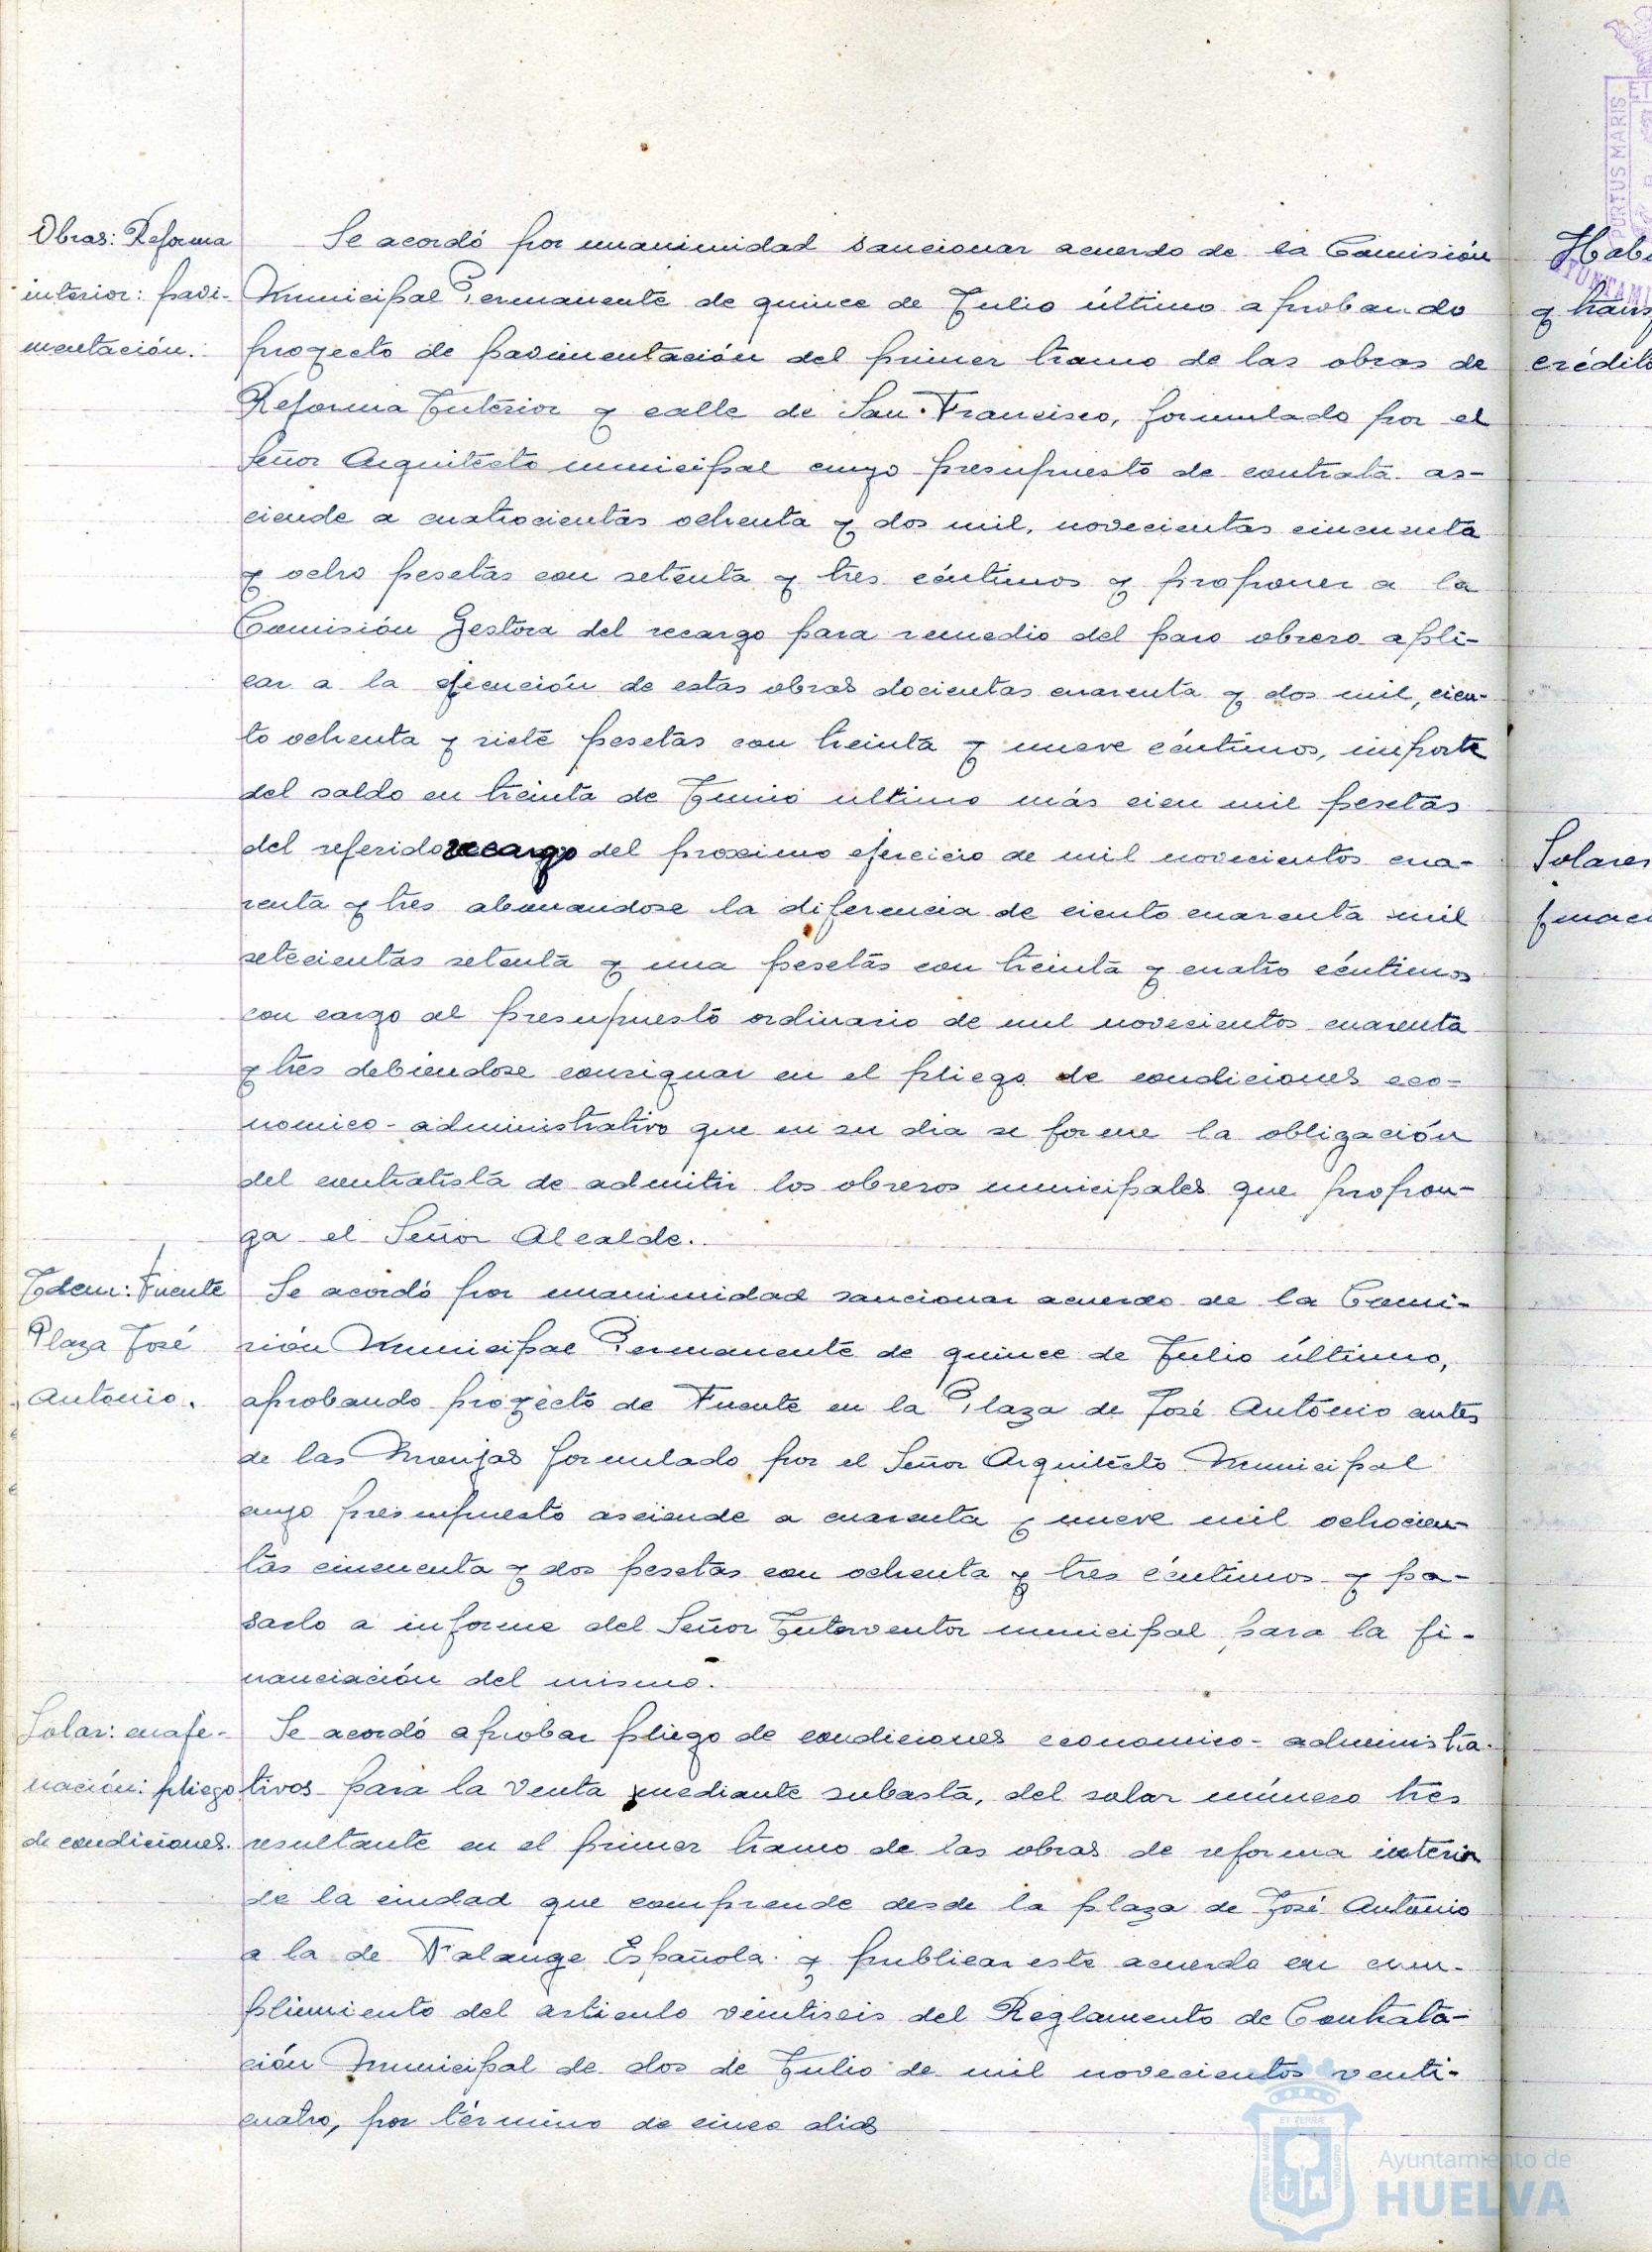 Obras: Reforma
interior: pavi-
mentación.
Se acordó por unanimidad sancionar acuerdo de la Comisión
Municipal Permanente de quince de Julio último aprobando
proyecto de pavimentación del primer tramo de las obras de
Reforma Interior y calle de San Francisco, formulado por el
Señor Arquitecto municipal cuyo presupuesto de contrata as-
ciende a cuatrocientas ochenta y dos mil, novecientas cincuenta
y ocho pesetas con setenta y tres céntimos y proponer a la
Comisión Gestora del recargo para remedio del paro obrero apli-
car a la ejecución de estas obras docientas cuarenta y dos mil, cien-
to ochenta y siete pesetas con treinta y nueve céntimos, importe
del saldo en treinta de Junio ultimo más cien mil pesetas
del referido recargo del proximo ejercicio de mil novecientos cua-
renta y tres abonandose la diferencia de ciento cuarenta mil
setecientas setenta y una pesetas con treinta y cuatro céntimos
con cargo al presupuesto ordinario de mil novecientos cuarenta
y tres debiendose consignar en el pliego de condiciones eco-
nomico-administrativo que en su dia se forme la obligación
del contratista de admitir los obreros municipales que propon-
ga el Señor Alcalde.
Idem: Fuente
Plaza José
Antonio.
Se acordó por unanimidad sancionar acuerdo de la Comi-
sión Municipal Permanente de quince de Julio último,
aprobando proyecto de Fuente en la Plaza de José Antonio antes
de las Monjas formulado por el Señor Arquitecto Municipal
cuyo presupuesto asciende a cuarenta y nueve mil ochocien-
tas cincuenta y dos pesetas con ochenta y tres céntimos y pa-
sarlo a informe del Señor Interventor municipal para la fi-
nanciación del mismo.
Solar: enaje-
nación: pliego
de condiciones.
Se acordó aprobar pliego de condiciones economico-administra-
tivos para la venta mediante subasta, del solar número tres
resultante en el primer tramo de las obras de reforma interior
de la ciudad que comprende desde la plaza de José Antonio
a la de Falange Española y publicar este acuerdo en cum-
plimiento del articulo veintiseis del Reglamento de Contrata-
ción Municipal de dos de Julio de mil novecientos venti-
cuatro, por término de cinco dias
PORTUS MARIS
y trans
crédito
Solares
Ayuntamiento de
HUELVA